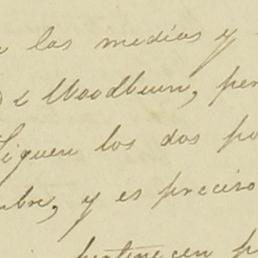 las medias y
de Woodbeun, per
Siguen los dos po
bre, y es preciso
pertenecen p